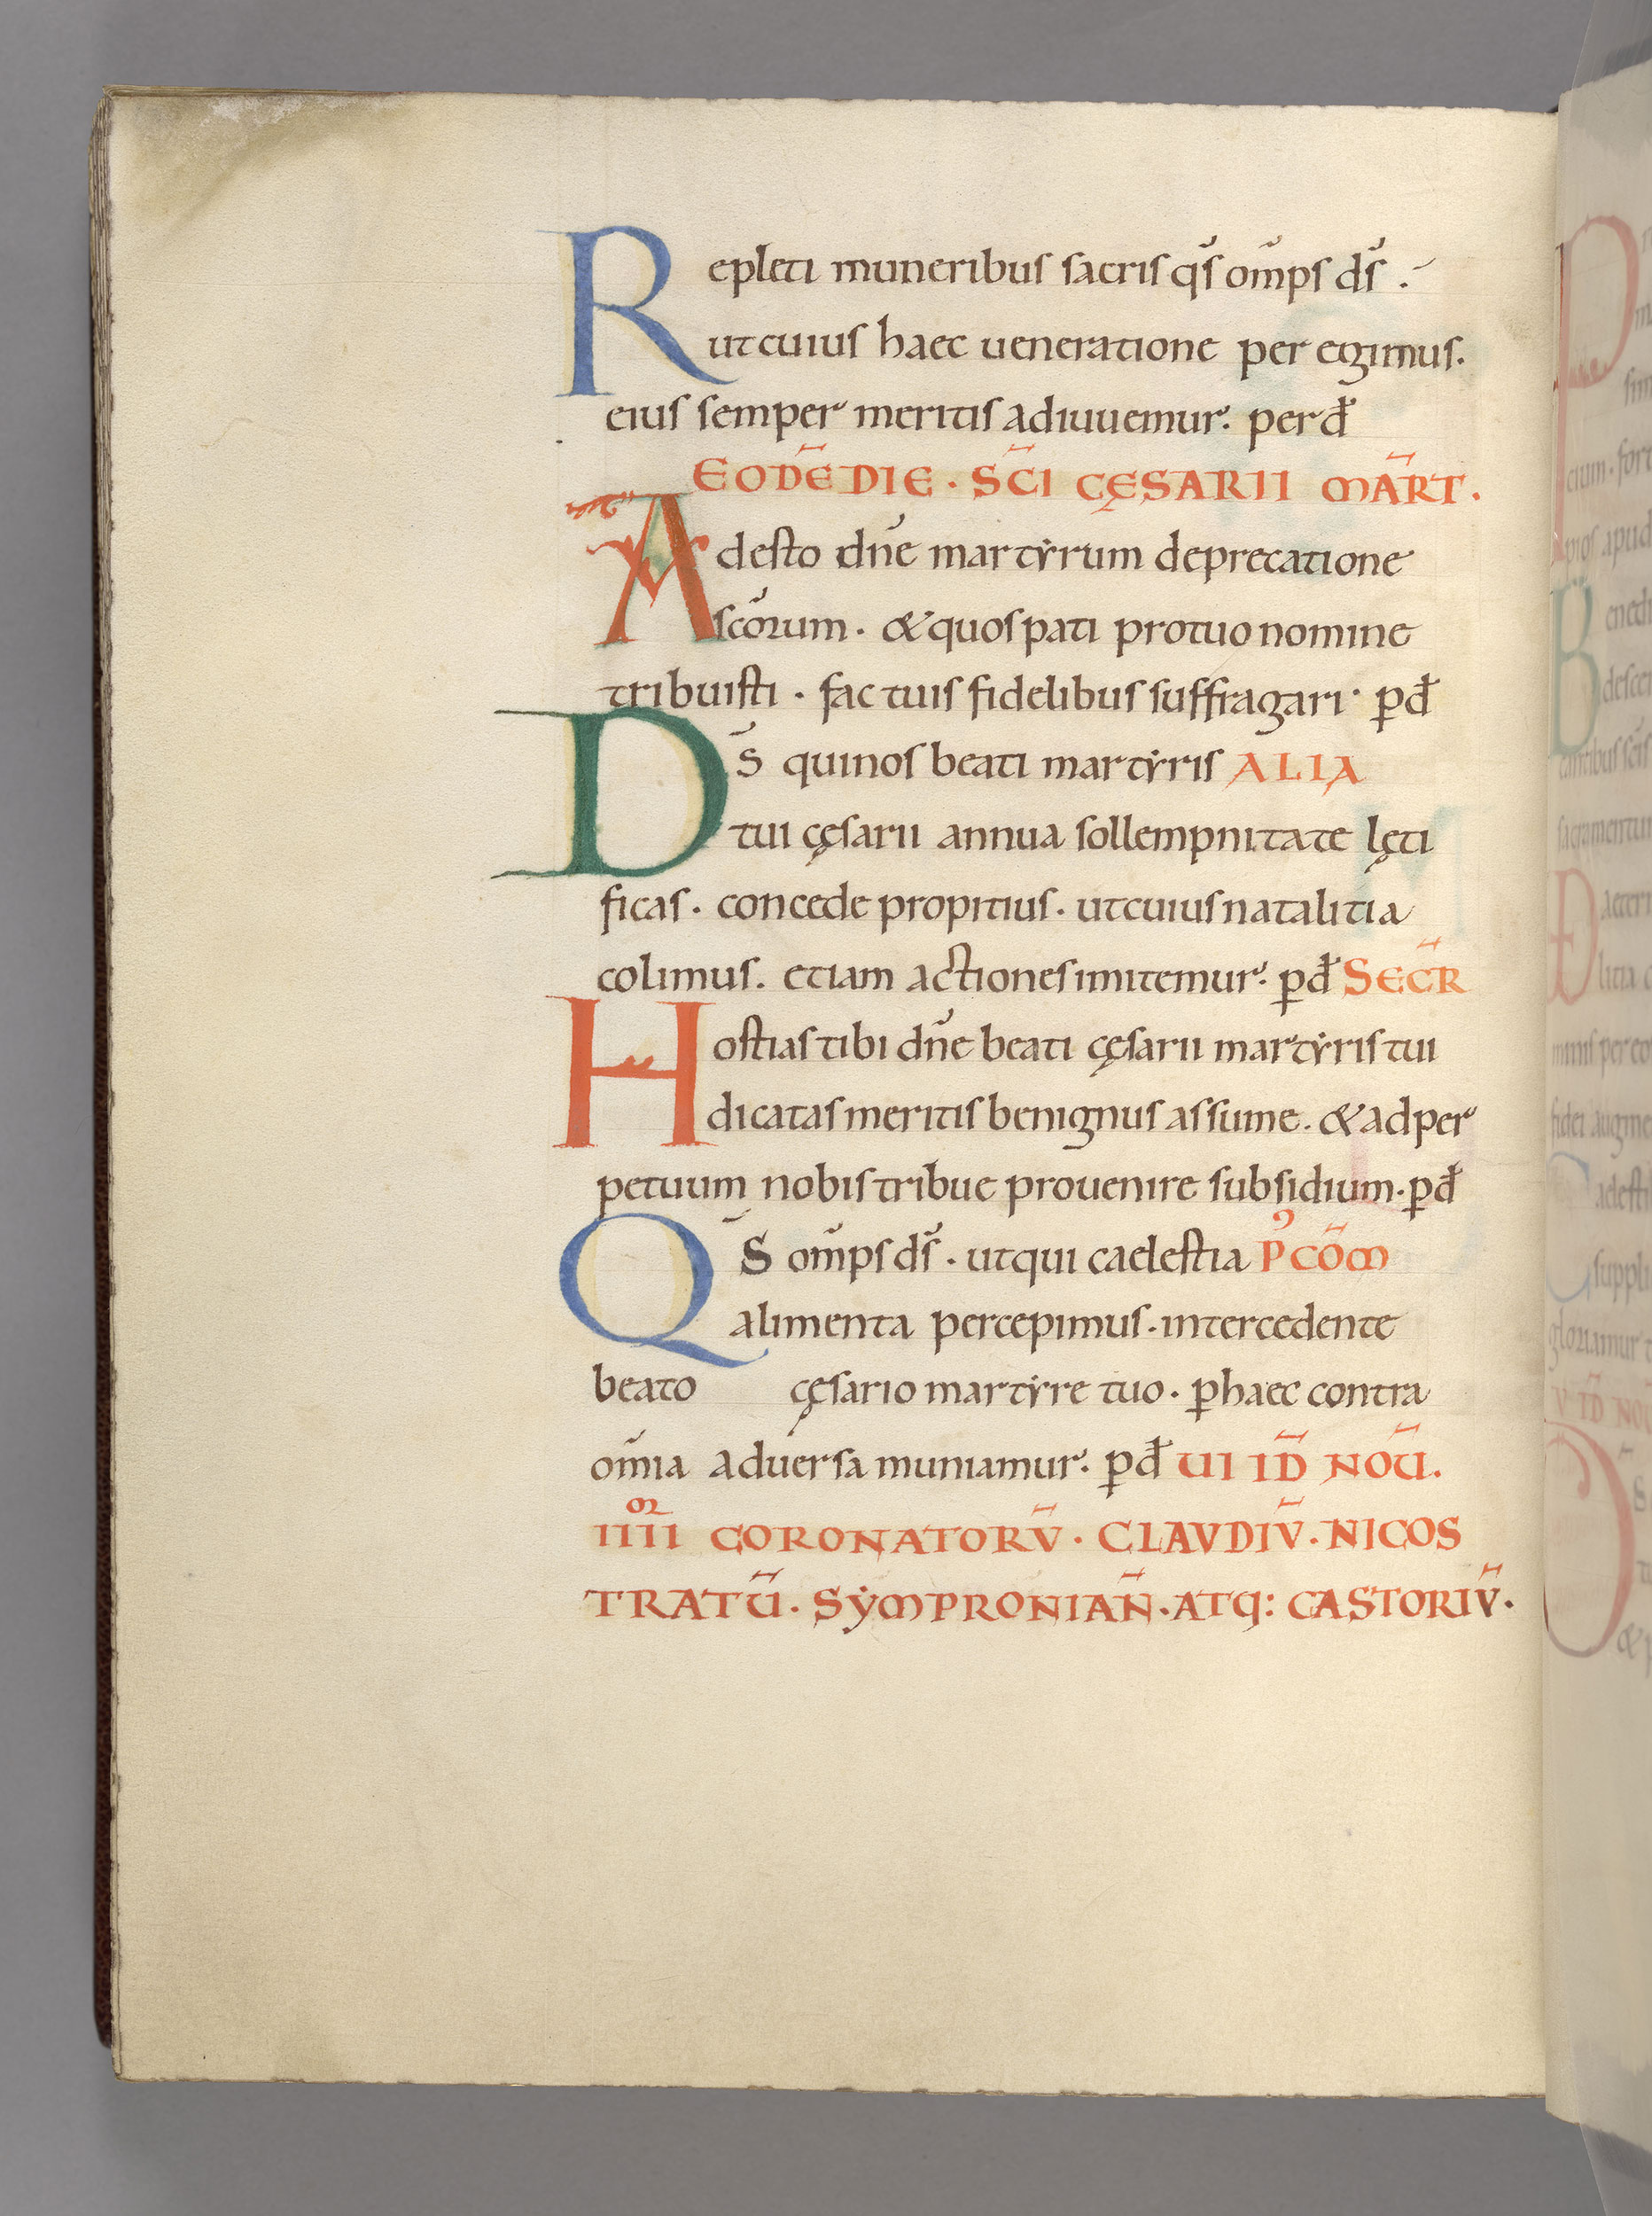 Repleti muneribus sacris qs̄ om̄ps ds̄ .
ut cuius haec ueneratione per egimus.
eius semper meritis adiuuemur. per d̄
EODĒ DIE · SC̄I CĘSARII MĀRT.
Adesto dn̄e martẏrum deprecatione
scōrum . & quos pati pro tuo nomine
tribuisti . fac tuis fidelibus suffragari . ꝑ d̄
DS̄ qui nos beati martẏris ALIA
tui cęsarii annua sollempnitate lęti
ficas . concede propitius . ut cuius natalitia
colimus . etiam actiones imitemur . ꝑ d̄ SEC̄R
Hostias tibi dn̄e beati cęsarii martẏris tui
dicatas meritis benignus assume . & ad per
petuum nobis tribue prouenire subsidium . ꝑ d̄
QS̄ om̄ps ds̄ . ut qui caelestia P᾿ CŌM
alimenta percepimus . intercedente
beato cęsario martẏre tuo . ꝑ haec contra
om̄ia aduersa muniamur . ꝑ d̄ UI ID̄ NOŪ.
IIIIoꝛ CORONATORV̄ . CLAVDIV̄ . NICOS
TRATŪ . SẎMPRONIAN̄ . ATQ: CASTORIV̄ .